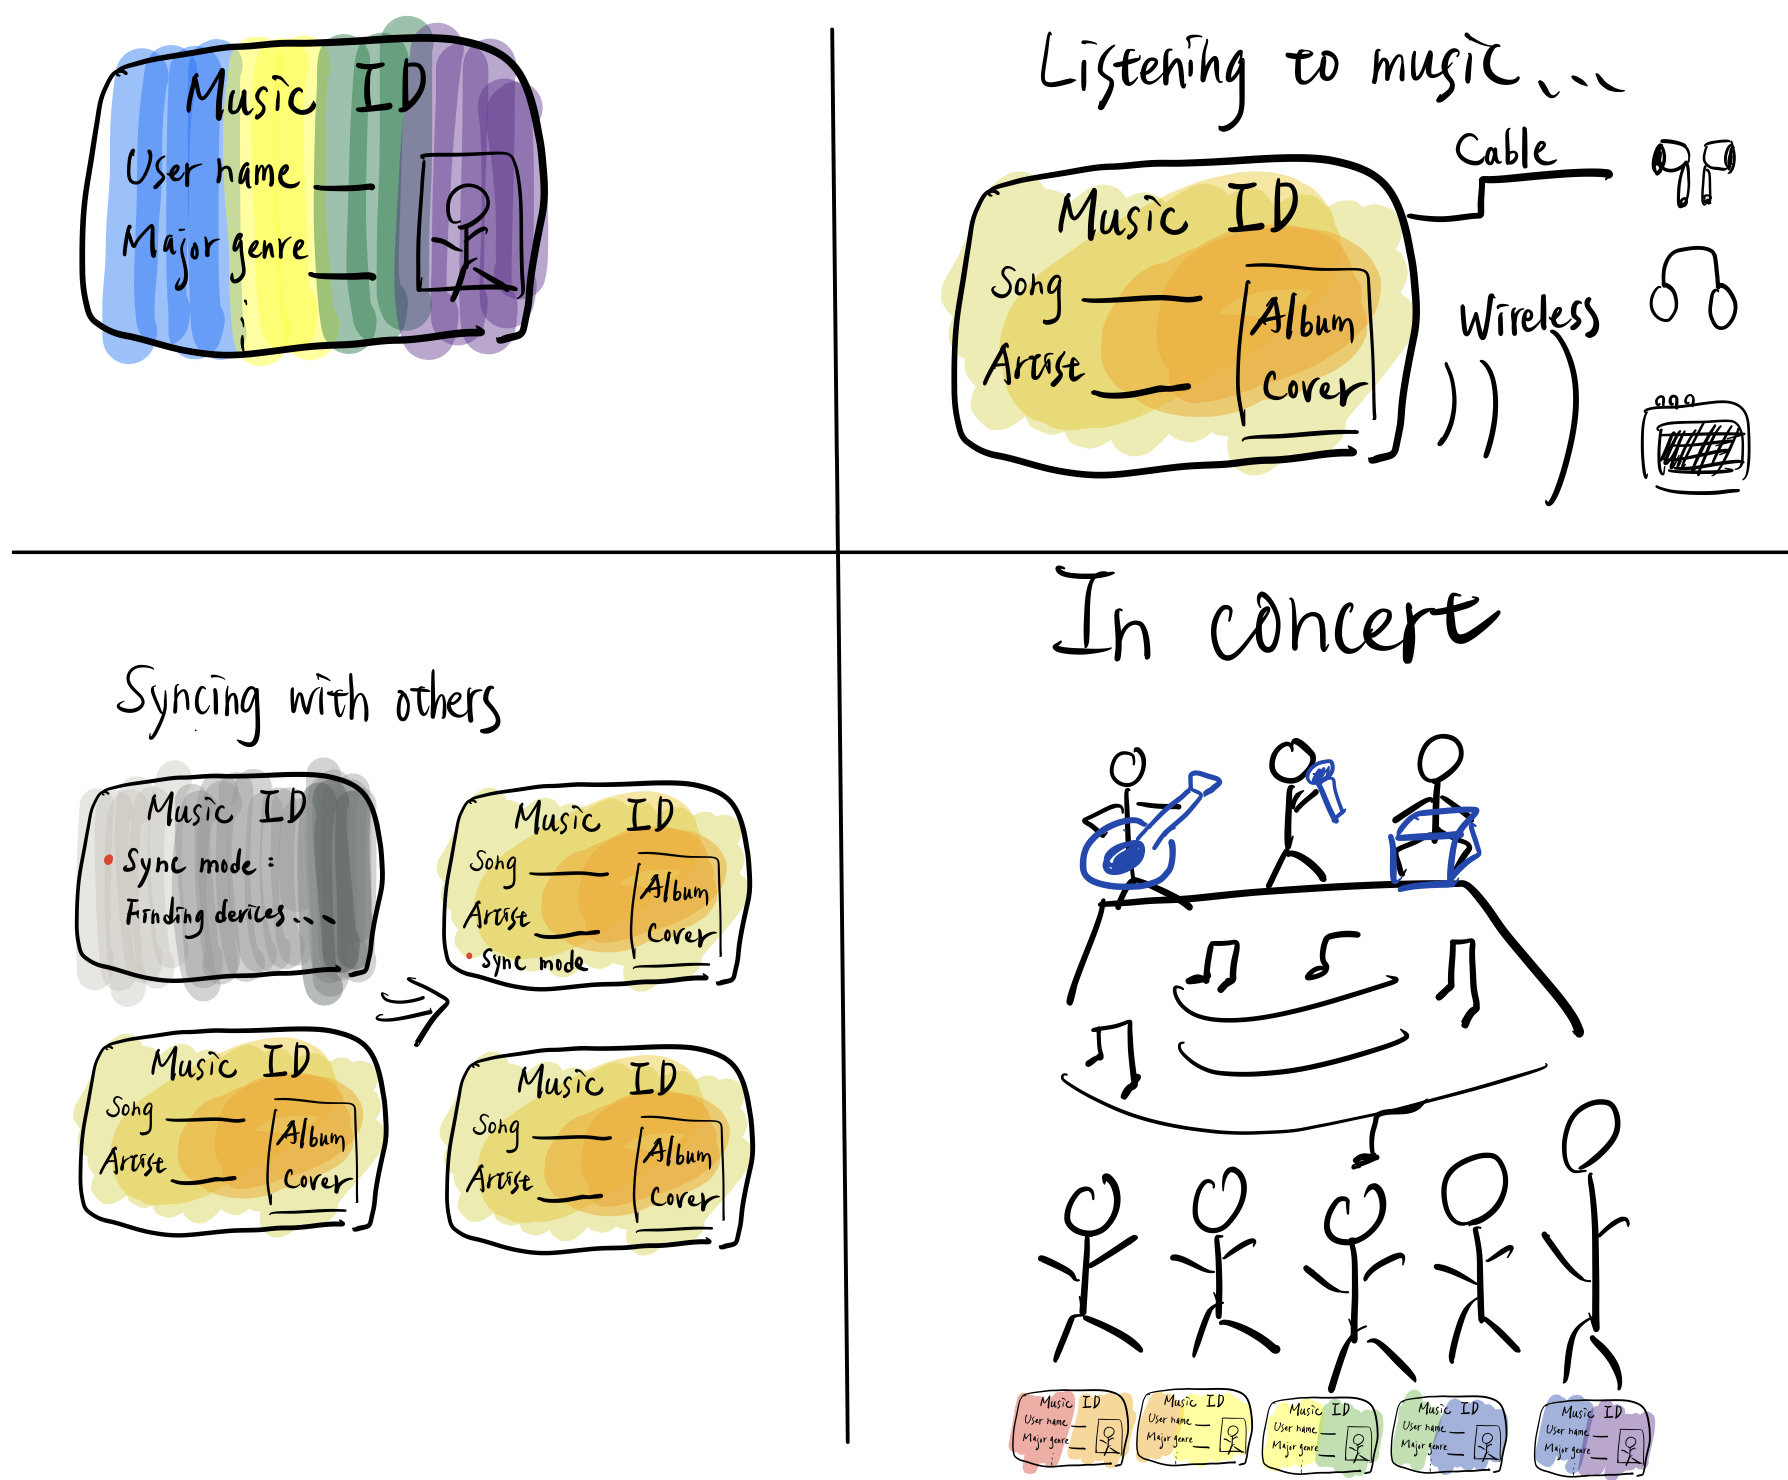 Music ID
User name
Major genre
Listening to music...
Music ID
Song
Artist
Album
Cover
Cable
Wireless
Syncing with others
Music ID
Sync mode:
Finding devices...
Music ID
Song
Artist
Album
Cover
Sync mode
Music ID
Song
Artist
Album
Cover
Music ID
Song
Artist
Album
Cover
In concert
Music ID
User name
Major genre
Music ID
User name
Major genre
Music ID
User name
Major genre
Music ID
User name
Major genre
Music ID
User name
Major genre